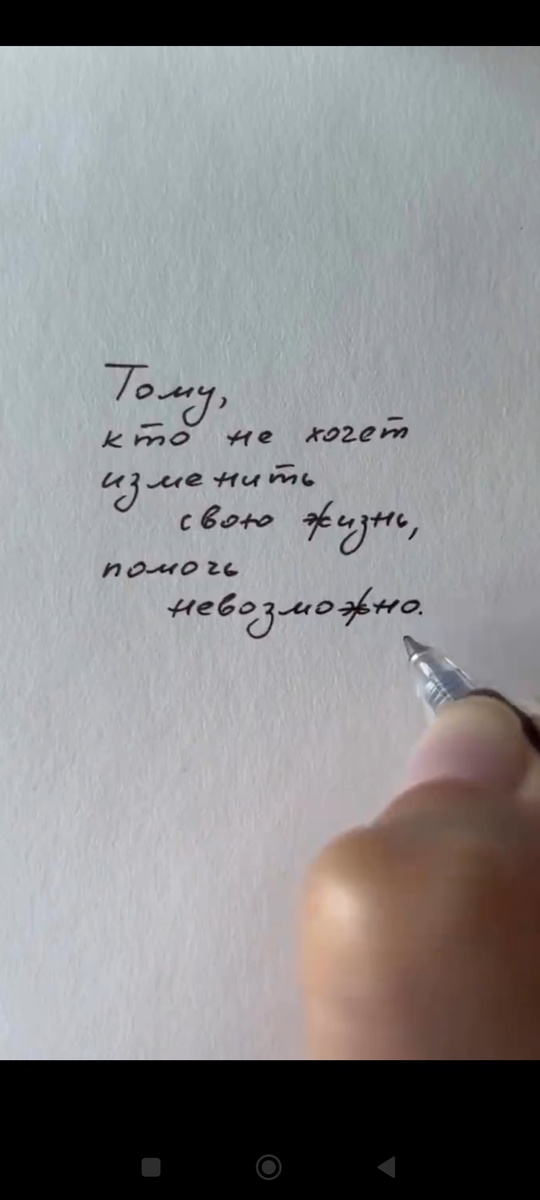 Тому,
кто не хочет
изменить
свою жизнь,
помочь
невозможно.